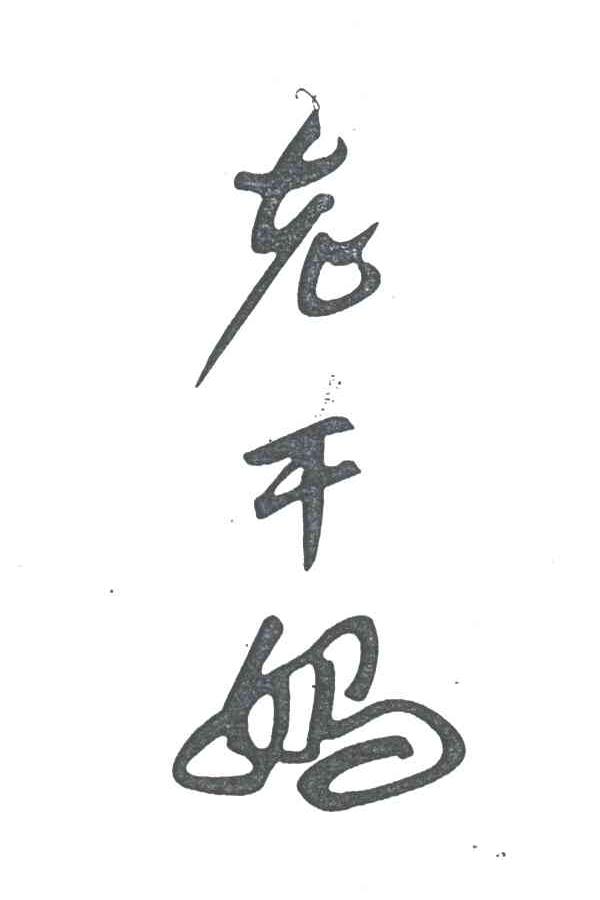 老干妈